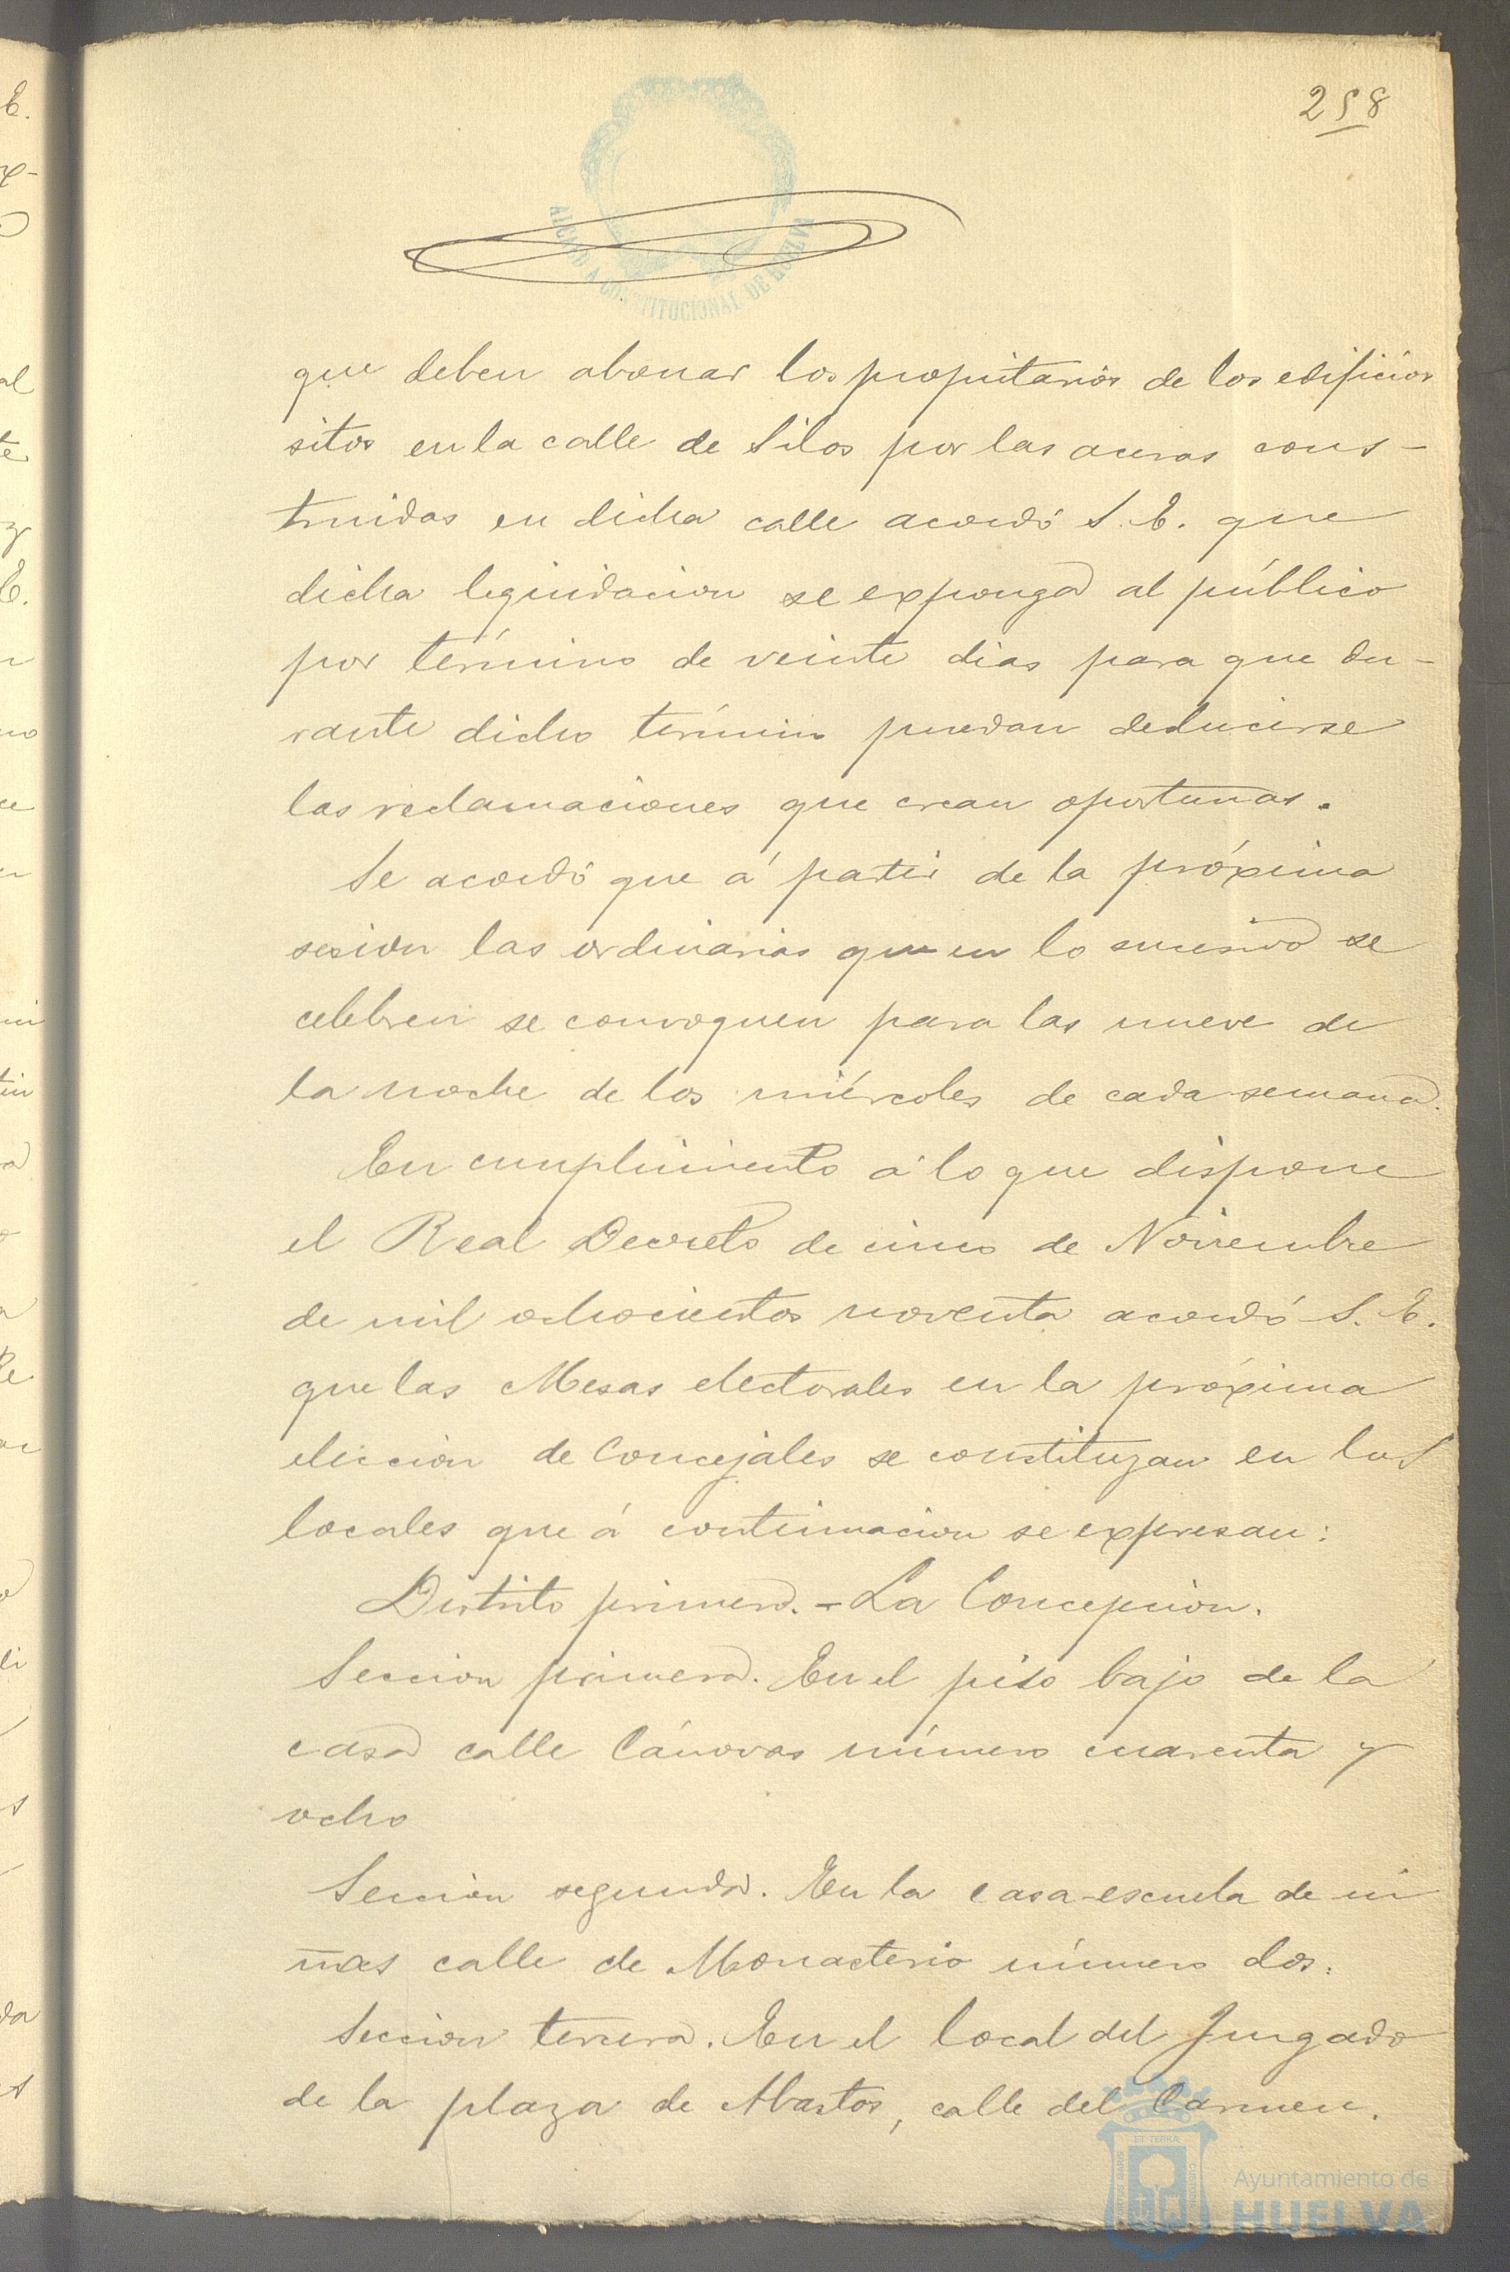 258
ALCALDIA CONSTITUCIONAL DE HUELVA
que deben abonar los propietarios de los edificios
sitos en la calle de Silos por las aceras cons-
truidas en dicha calle acordó S. E. que
dicha liquidacion se exponga al público
por término de veinte dias para que du-
rante dicho término puedan deducirse
las reclamaciones que crean oportunas.
Se acordó que á partir de la próxima
sesion las ordinarias que en lo sucesivo se
celebren se convoquen para las nueve de
la noche de los miércoles de cada semana.
En cumplimiento á lo que dispone
el Real Decreto de cinco de Noviembre
de mil ochocientos noventa acordó S. E.
que las Mesas electorales en la próxima
eleccion de Concejales se constituyan en los
locales que á continuacion se expresan:
Distrito primero. - La Concepcion.
Seccion primera. En el piso bajo de la
casa calle Cánovas número cuarenta y
ocho
Seccion segunda. En la casa-escuela de ni
ñas calle de Monasterio número dos.
Seccion tercera. En el local del Juzgado
de la plaza de Abastos, calle del Carmen.
Ayuntamiento de
HUELVA